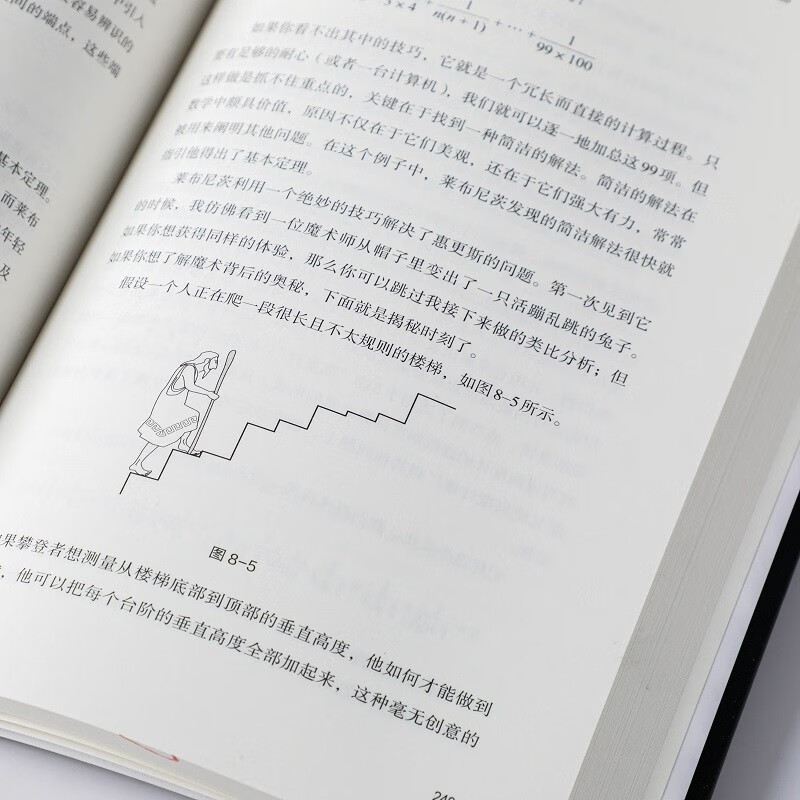 中引人
容易辨识的
间的端点，这些端
基本定理。
而莱布
年轻
及
3×4 + 1/n(n+1) + ··· + 1/99×100
如果你看不出其中的技巧，它就是一个冗长而直接的计算过程。只
要有足够的耐心（或者一台计算机），我们就可以逐一地加总这99项。但
这样做是抓不住重点的，关键在于找到一种简洁的解法。简洁的解法在
数学中颇具价值，原因不仅在于它们美观，还在于它们强大有力，常常
被用来阐明其他问题。在这个例子中，莱布尼茨发现的简洁解法很快就
指引他得出了基本定理。
莱布尼茨利用一个绝妙的技巧解决了惠更斯的问题。第一次见到它
的时候，我仿佛看到一位魔术师从帽子里变出了一只活蹦乱跳的兔子。
如果你想获得同样的体验，那么你可以跳过我接下来做的类比分析；但
如果你想了解魔术背后的奥秘，下面就是揭秘时刻了。
假设一个人正在爬一段很长且不太规则的楼梯，如图8-5所示。
图8-5
果攀登者想测量从楼梯底部到顶部的垂直高度，他如何才能做到
，他可以把每个台阶的垂直高度全部加起来，这种毫无创意的